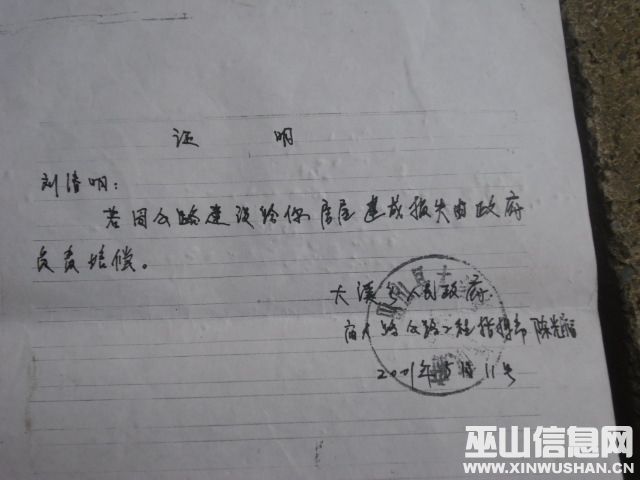 证 明
刘清明：
若因公路建设给你房屋造成损失由政府
负责培偿。
大溪乡人民政府
公路工程指挥部 陈
2001年5月11号
巫山信息网
WWW.XINWUSHAN.CN